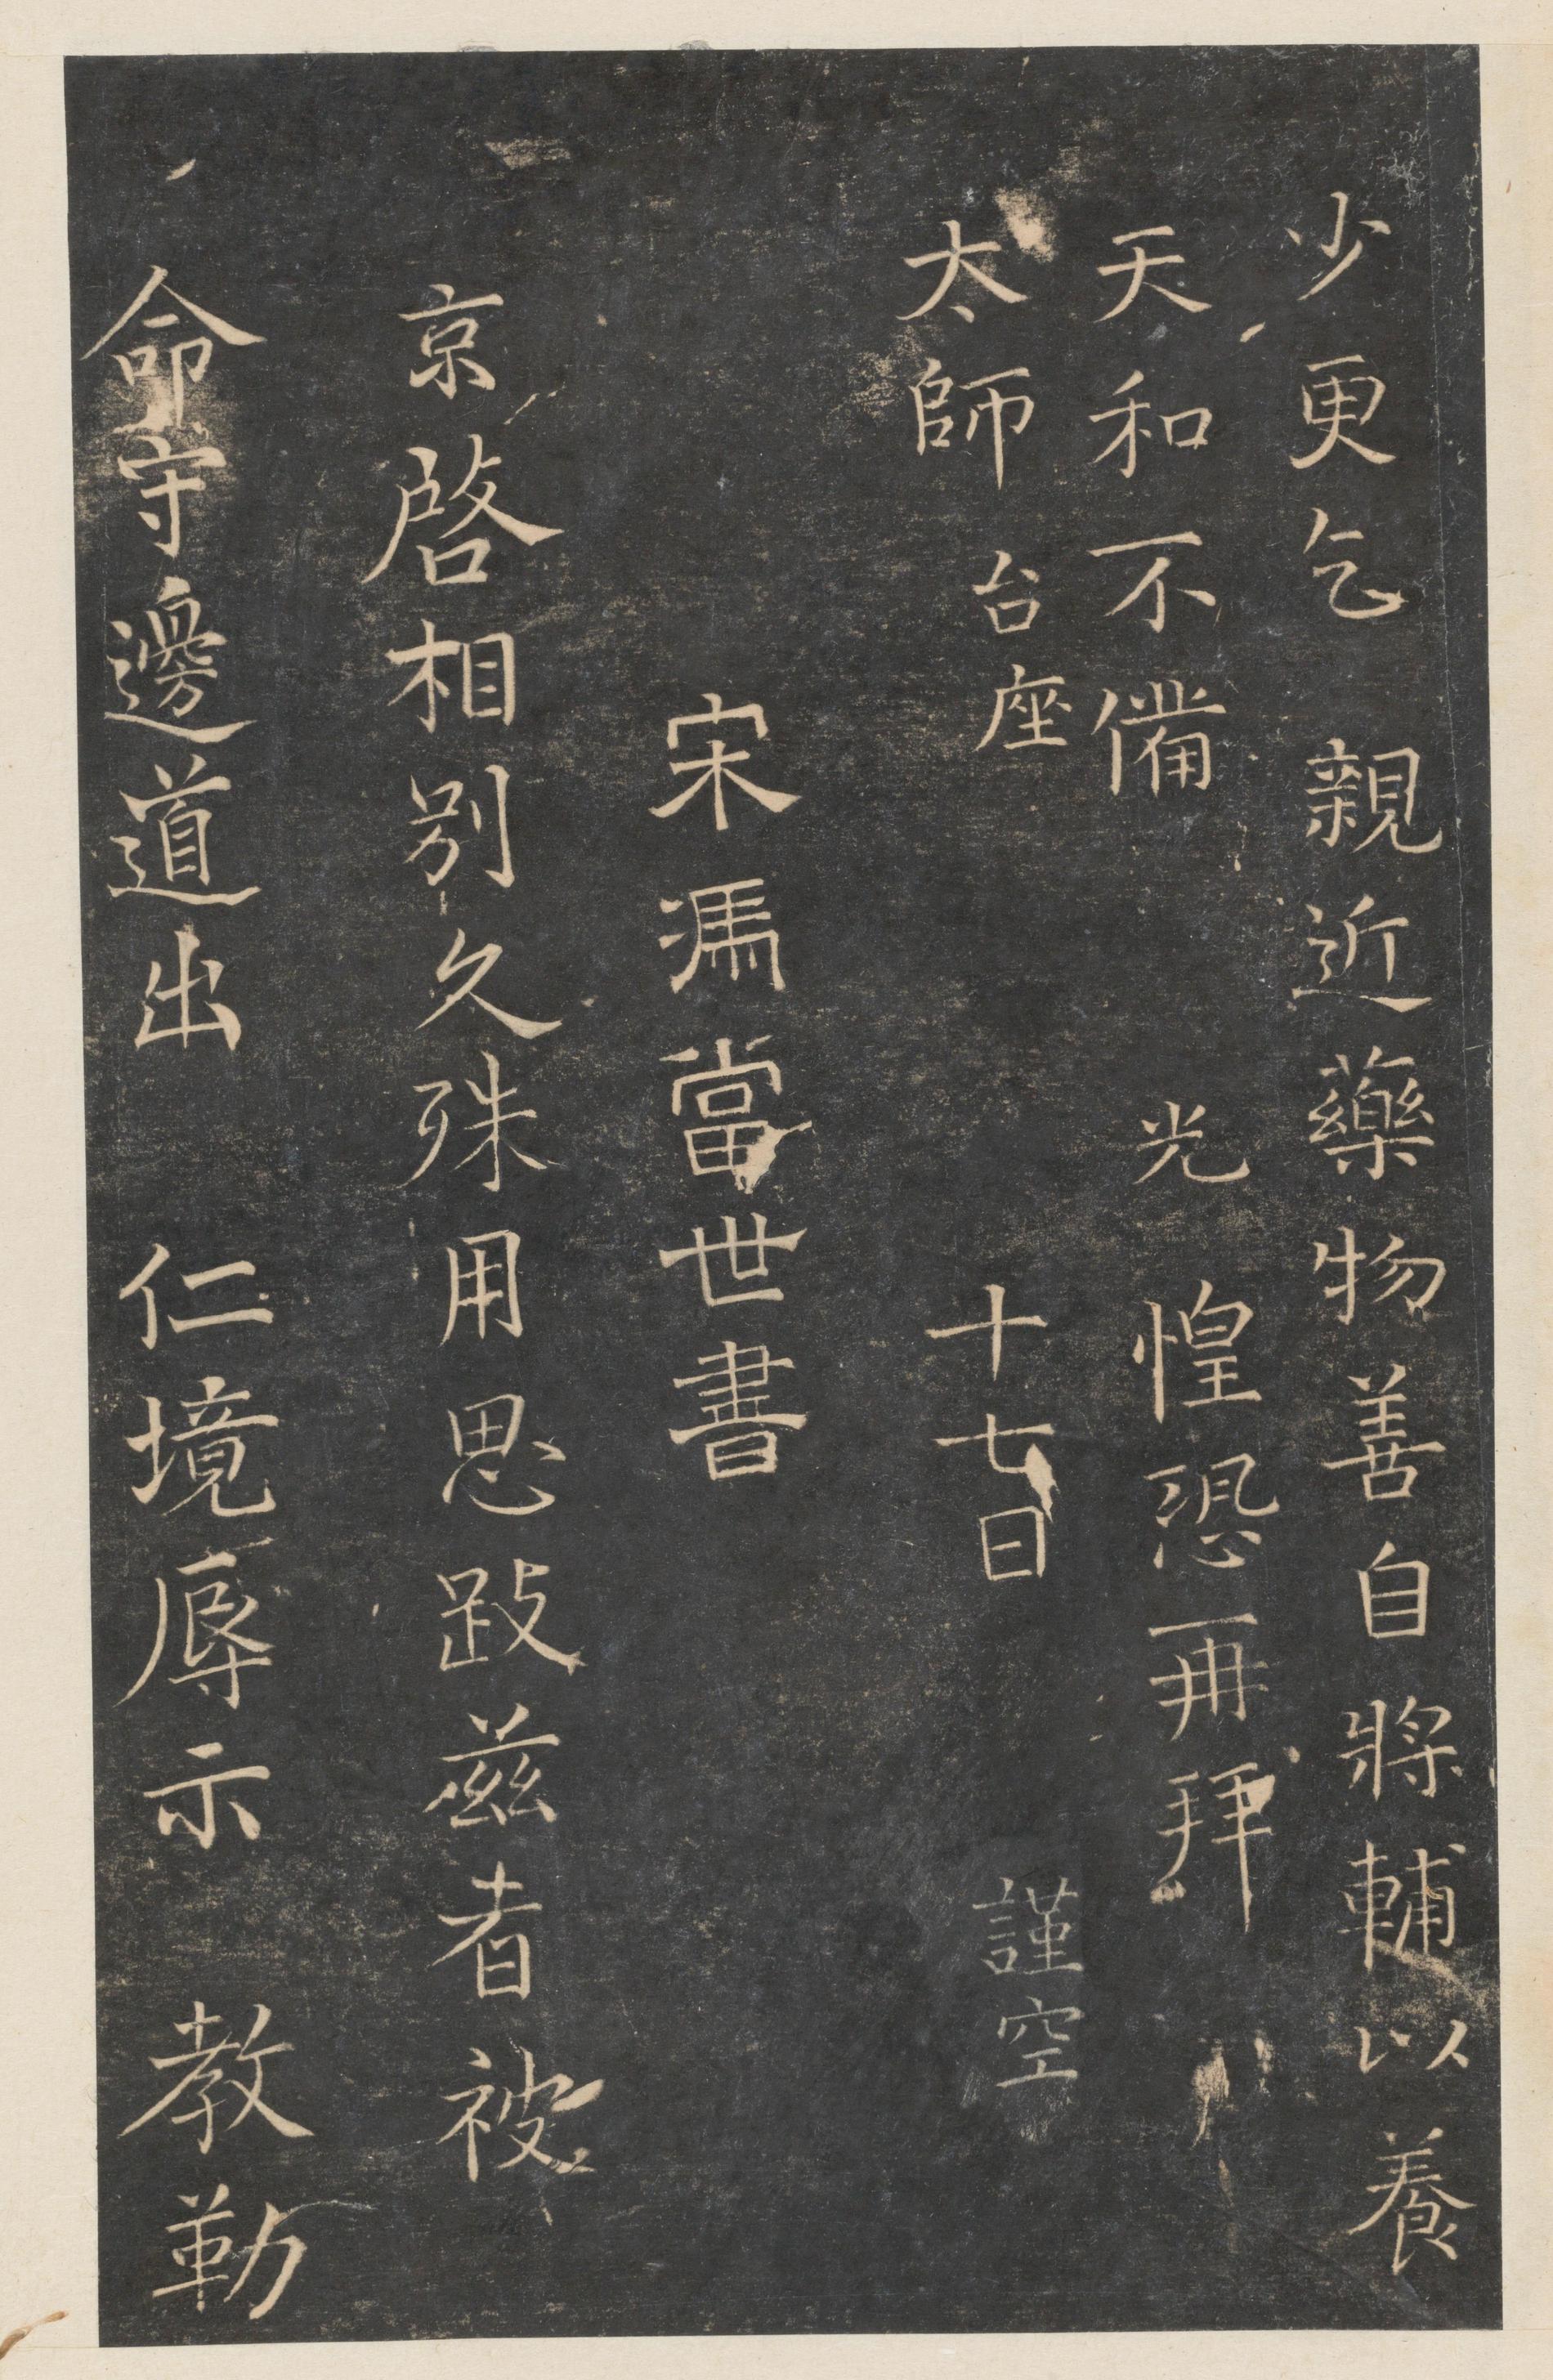 少更乞親近藥物善自將輔以養
天和不備光惶恐再拜
太師台座十七日謹空
宋馮當世書
京啓相別久殊用思跂茲者被
命守邊道出仁境辱示教勤